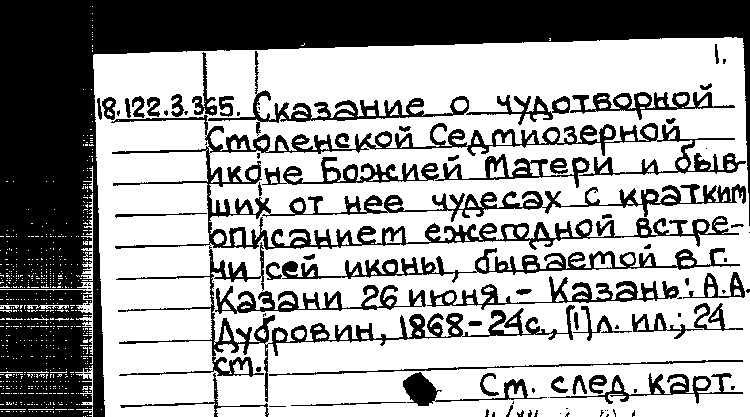 1.
18.122.3.365. Сказание о чудотворной
Смоленской Седмиозерной
иконе Божией Матери и быв-
ших от нее чудесах с кратким
описанием ежегодной встре-
чи сей иконы, бываемой в г.
Казани 26 июня.- Казань: А.А.
Дубровин, 1868.- 24с., [1] л. ил.; 24
см.
См. след. карт.